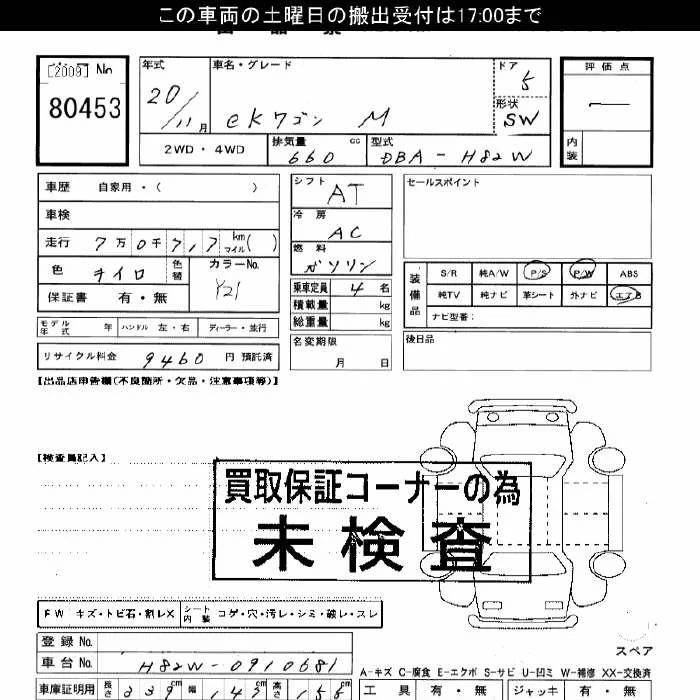 この車両の土曜日の搬出受付は17:00まで
[2009] No
80453
年式
20/11月
車名・グレード
eKワゴン M
ドア
5
形状
SW
評価点
内装
2WD・4WD
排気量
660 cc
型式
DBA-H82W
車歴 自家用・( )
車検
走行 7万0千7,17 km マイル( )
色 キイロ 色替 カラーNo. Y21
保証書 有・無
モデル年式 年 ハンドル 左・右 ディーラー・並行
リサイクル料金 9460 円 預託済
シフト
AT
冷房
AC
燃料
ガソリン
乗車定員 4名
積載量 kg
総重量 kg
名変期限
月 日
セールスポイント
装備品
S/R 純A/W P/S P/W ABS
純TV 純ナビ 革シート 外ナビ エアB
ナビ型番:
後日品
【出品店申告欄(不良箇所・欠品・注意事項等)】
【検査員記入】
買取保証コーナーの為
未検査
FW キズ・トビ石・割レX シート内装 コゲ・穴・汚レ・シミ・破レ・スレ
登録 No.
車台 No. H82W-0910681
スペア
A-キズ C-腐食 E-エクボ S-サビ U-凹ミ W-補修 XX-交換済
車庫証明用 長さ 339cm 幅 147cm 高さ 155cm
工具 有・無 ジャッキ 有・無